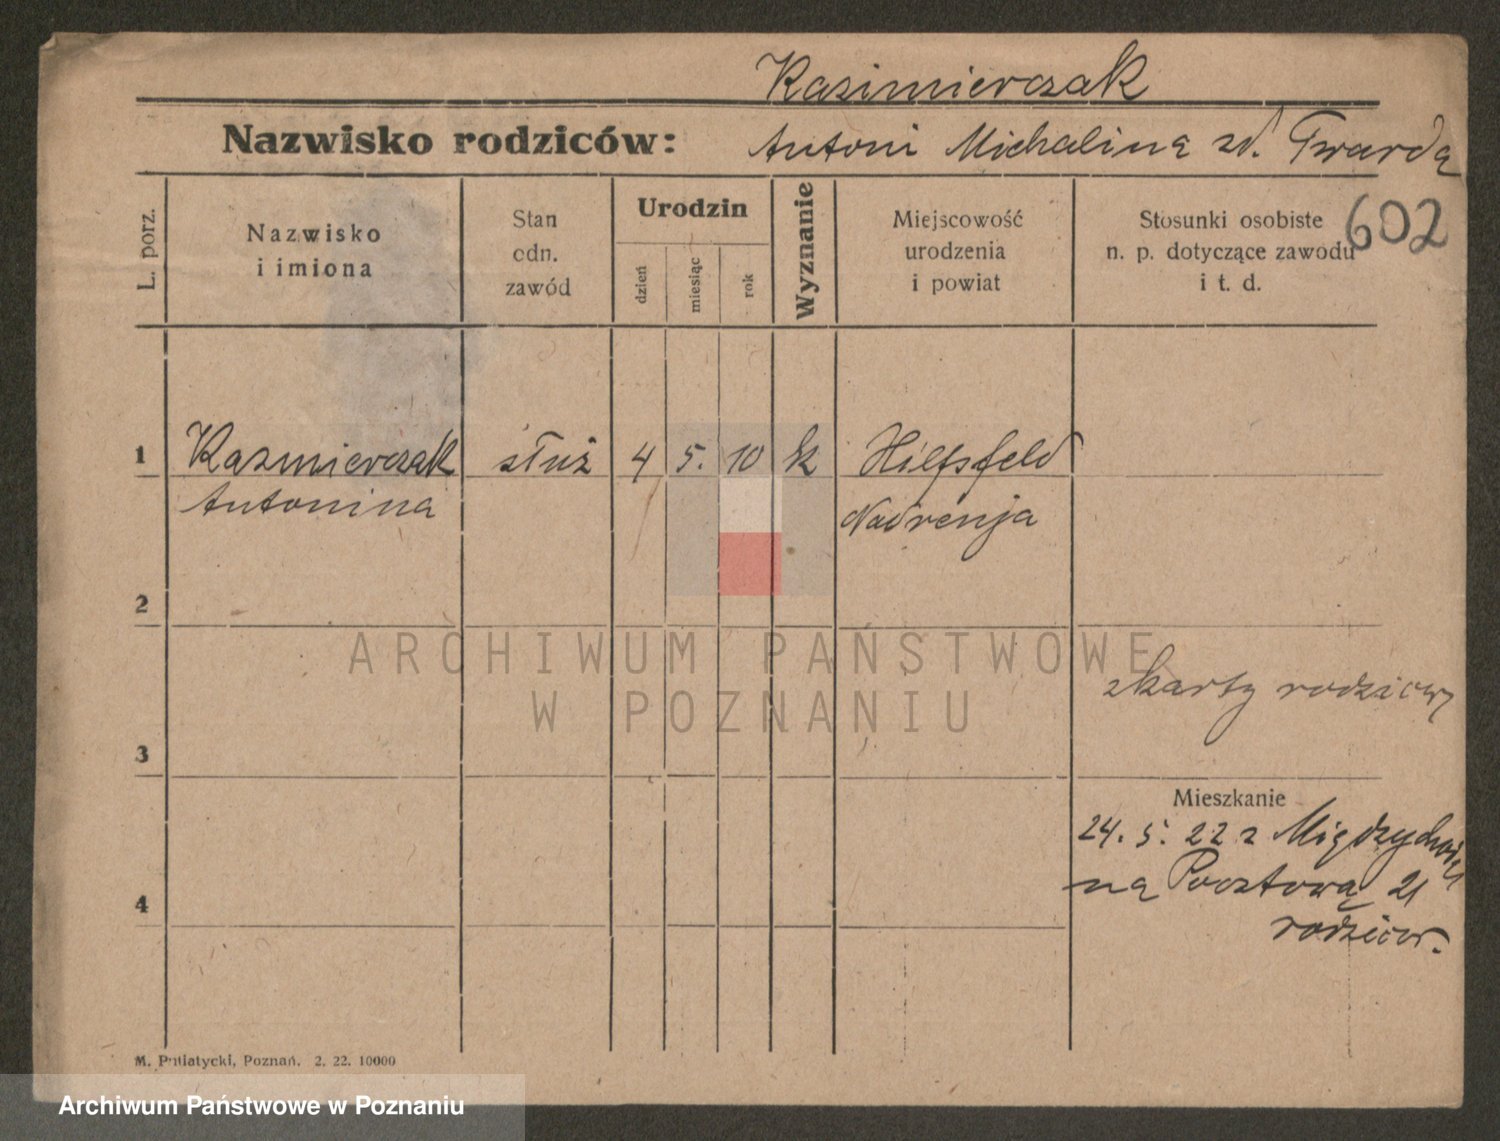 Kazimierczak
Nazwisko rodziców: Antoni Michalina zd. Twarda
602
L. porz.
Nazwisko
i imiona
Stan
odn.
zawód
Urodzin
dzień
miesiąc
rok
Wyznanie
Miejscowość
urodzenia
i powiat
Stosunki osobiste
n. p. dotyczące zawodu
i t. d.
1 Kazmierczak służ 4 5. 10 k Hilfsfeld
Antonina Nadrenja
2
ARCHIWUM PAŃSTWOWE
W POZNANIU
z karty rodziców
3
Mieszkanie
24. 5. 22 z
na Pocztową 21
4
rodziców.
M. Putiatycki, Poznań. 2. 22. 10000
Archiwum Państwowe w Poznaniu